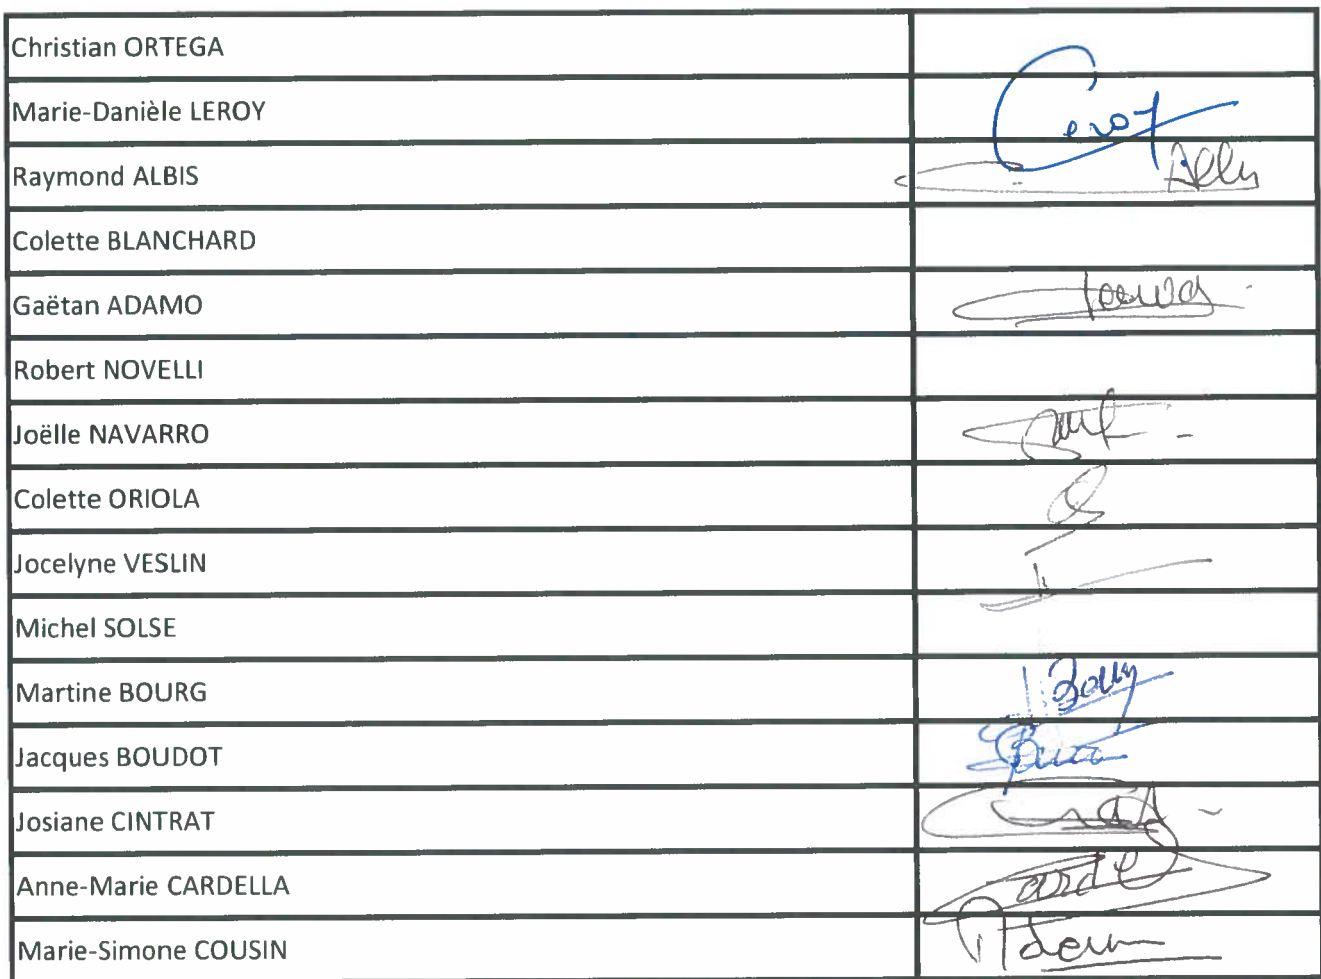 Christian ORTEGA
Marie-Danièle LEROY
Leroy
Raymond ALBIS
Colette BLANCHARD
Gaëtan ADAMO
Robert NOVELLI
Joëlle NAVARRO
Colette ORIOLA
Jocelyne VESLIN
Michel SOLSE
Martine BOURG
Jacques BOUDOT
Josiane CINTRAT
Anne-Marie CARDELLA
Marie-Simone COUSIN